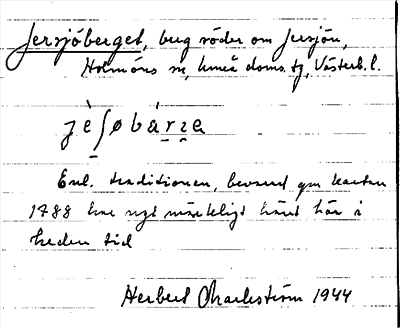 Jersjöberget, berg söder om Jersjön,
Holmöns sn, Umeå doms. tg, Västerb. l.
jèʃøbárʒa
Enl. traditionen, bevarad gm kartan
1788 har ngt märkligt hänt här i
heden tid
Herbert Markström 1944